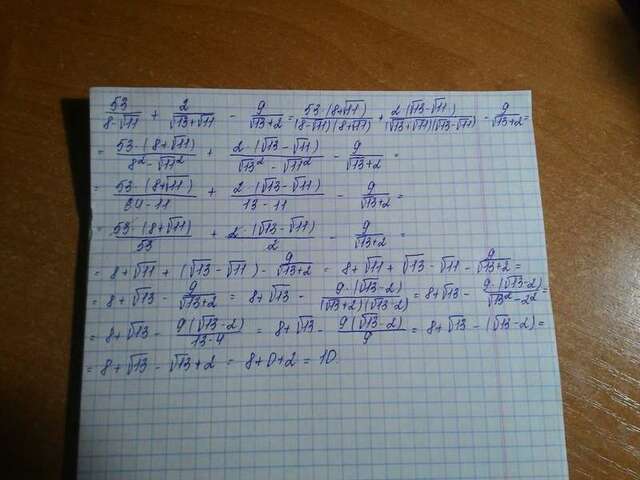 53/(8-√11) + 2/(√13+√11) - 9/(√13+2) = 53·(8+√11)/((8-√11)(8+√11)) + 2(√13-√11)/((√13+√11)(√13-√11)) - 9/(√13+2) =
= 53·(8+√11)/(8²-√11²) + 2·(√13-√11)/(√13²-√11²) - 9/(√13+2) =
= 53·(8+√11)/(64-11) + 2·(√13-√11)/(13-11) - 9/(√13+2) =
= 53·(8+√11)/53 + 2·(√13-√11)/2 - 9/(√13+2) =
= 8+√11 + (√13-√11) - 9/(√13+2) = 8+√11+√13-√11 - 9/(√13+2) =
= 8+√13 - 9/(√13+2) = 8+√13 - 9·(√13-2)/((√13+2)(√13-2)) = 8+√13 - 9·(√13-2)/(√13²-2²) =
= 8+√13 - 9(√13-2)/(13-4) = 8+√13 - 9(√13-2)/9 = 8+√13 - (√13-2) =
= 8+√13 - √13+2 = 8+0+2 = 10